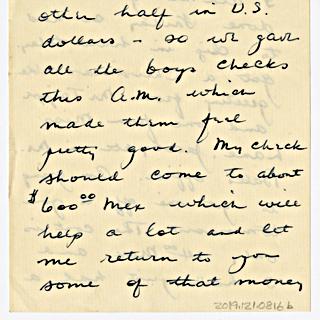 other half in U.S.
dollars - so we gave
all the boys checks
this A.M. which
made them feel
pretty good. My check
should come to about
$600.00 Mex which will
help a lot and let
me return to you
some of that money
2019.121.0816b